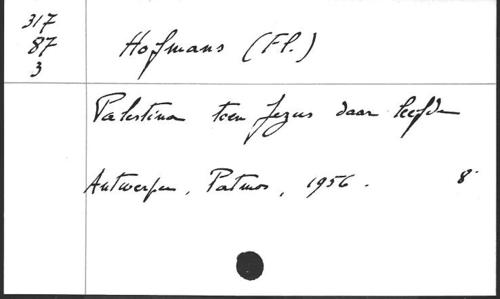 317
87
3
Hofmans (Fl.)
Palestina toen Jezus daar leefde
Antwerpen, Patmos, 1956. 8°